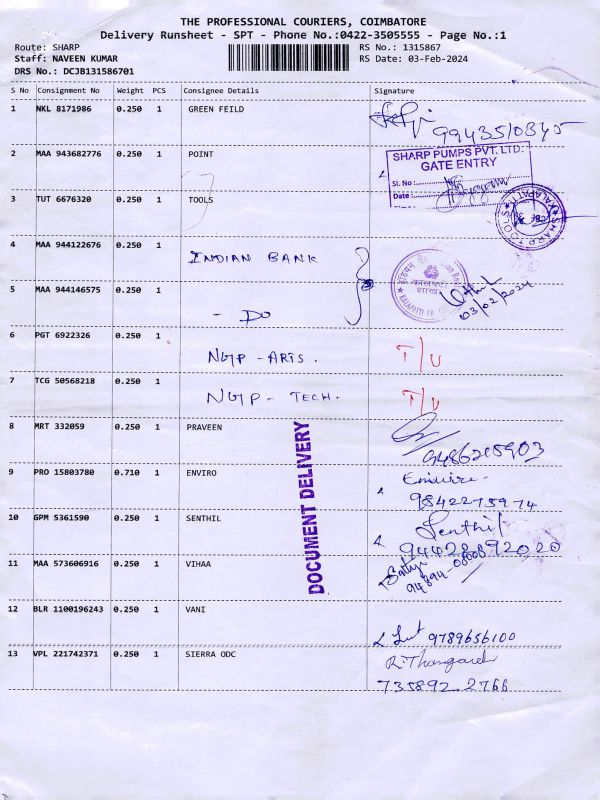 THE PROFESSIONAL COURIERS, COIMBATORE
Delivery Runsheet - SPT - Phone No.:0422-3505555 - Page No.:1
Route: SHARP
RS No.: 1315867
Staff: NAVEEN KUMAR
RS Date: 03-Feb-2024
DRS No.: DCJB131586701
S No Consignment No Weight PCS Consignee Details Signature
1 NKL 8171986 0.250 1 GREEN FEILD
9943510345
2 MAA 943682776 0.250 1 POINT
SHARP PUMPS PVT. LTD.
GATE ENTRY
Sl. No :
Date :
3 TUT 6676320 0.250 1 TOOLS
SHARP TOOLS KALAPATTI
4 MAA 944122676 0.250 1 INDIAN BANK
5 MAA 944146575 0.250 1 - DO
03/02/2024
6 PGT 6922326 0.250 1 NGP - ARTS. T/U
7 TCG 50568218 0.250 1 NGP - TECH. T/U
8 MRT 332059 0.250 1 PRAVEEN
9486215903
DOCUMENT DELIVERY
9 PRO 15803780 0.710 1 ENVIRO
9842275974
10 GPM 5361590 0.250 1 SENTHIL Senthil
9442892020
11 MAA 573606916 0.250 1 VIHAA
94894-08608
12 BLR 1100196243 0.250 1 VANI
9789656100
13 VPL 221742371 0.250 1 SIERRA ODC
735892 2766